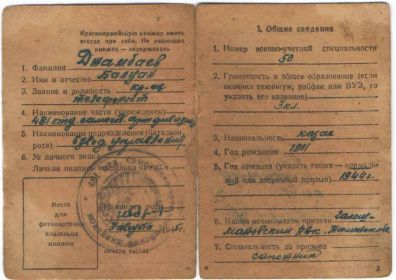 Красноармейскую книжку иметь
всегда при себе. Не имеющих
книжек — задерживать
1. Фамилия Джамбаев
2. Имя и отчество
3. Звание и должность кр-ец
телефонист
4. Наименование части (учреждения)
5. Наименование подразделения (батальон,
рота) взвод управления
6. № личного знака
Личная подпись владельца книжки
Место
для
фотокарточки
владельца
книжки
Командир
печать части)
I. Общие сведения
1. Номер военно-учетной специальности
50
2. Грамотность и общее образование (если
окончил техникум, рабфак или ВУЗ, то
указать его название)
3 кл.
3. Национальность казах
4. Год рождения 1911
5. Год призыва (указать также — нормаль-
ный или досрочный призыв) 1944 г.
6. Каким военкоматом призван
РВК
7. Специальность до призыва
сапожник
3